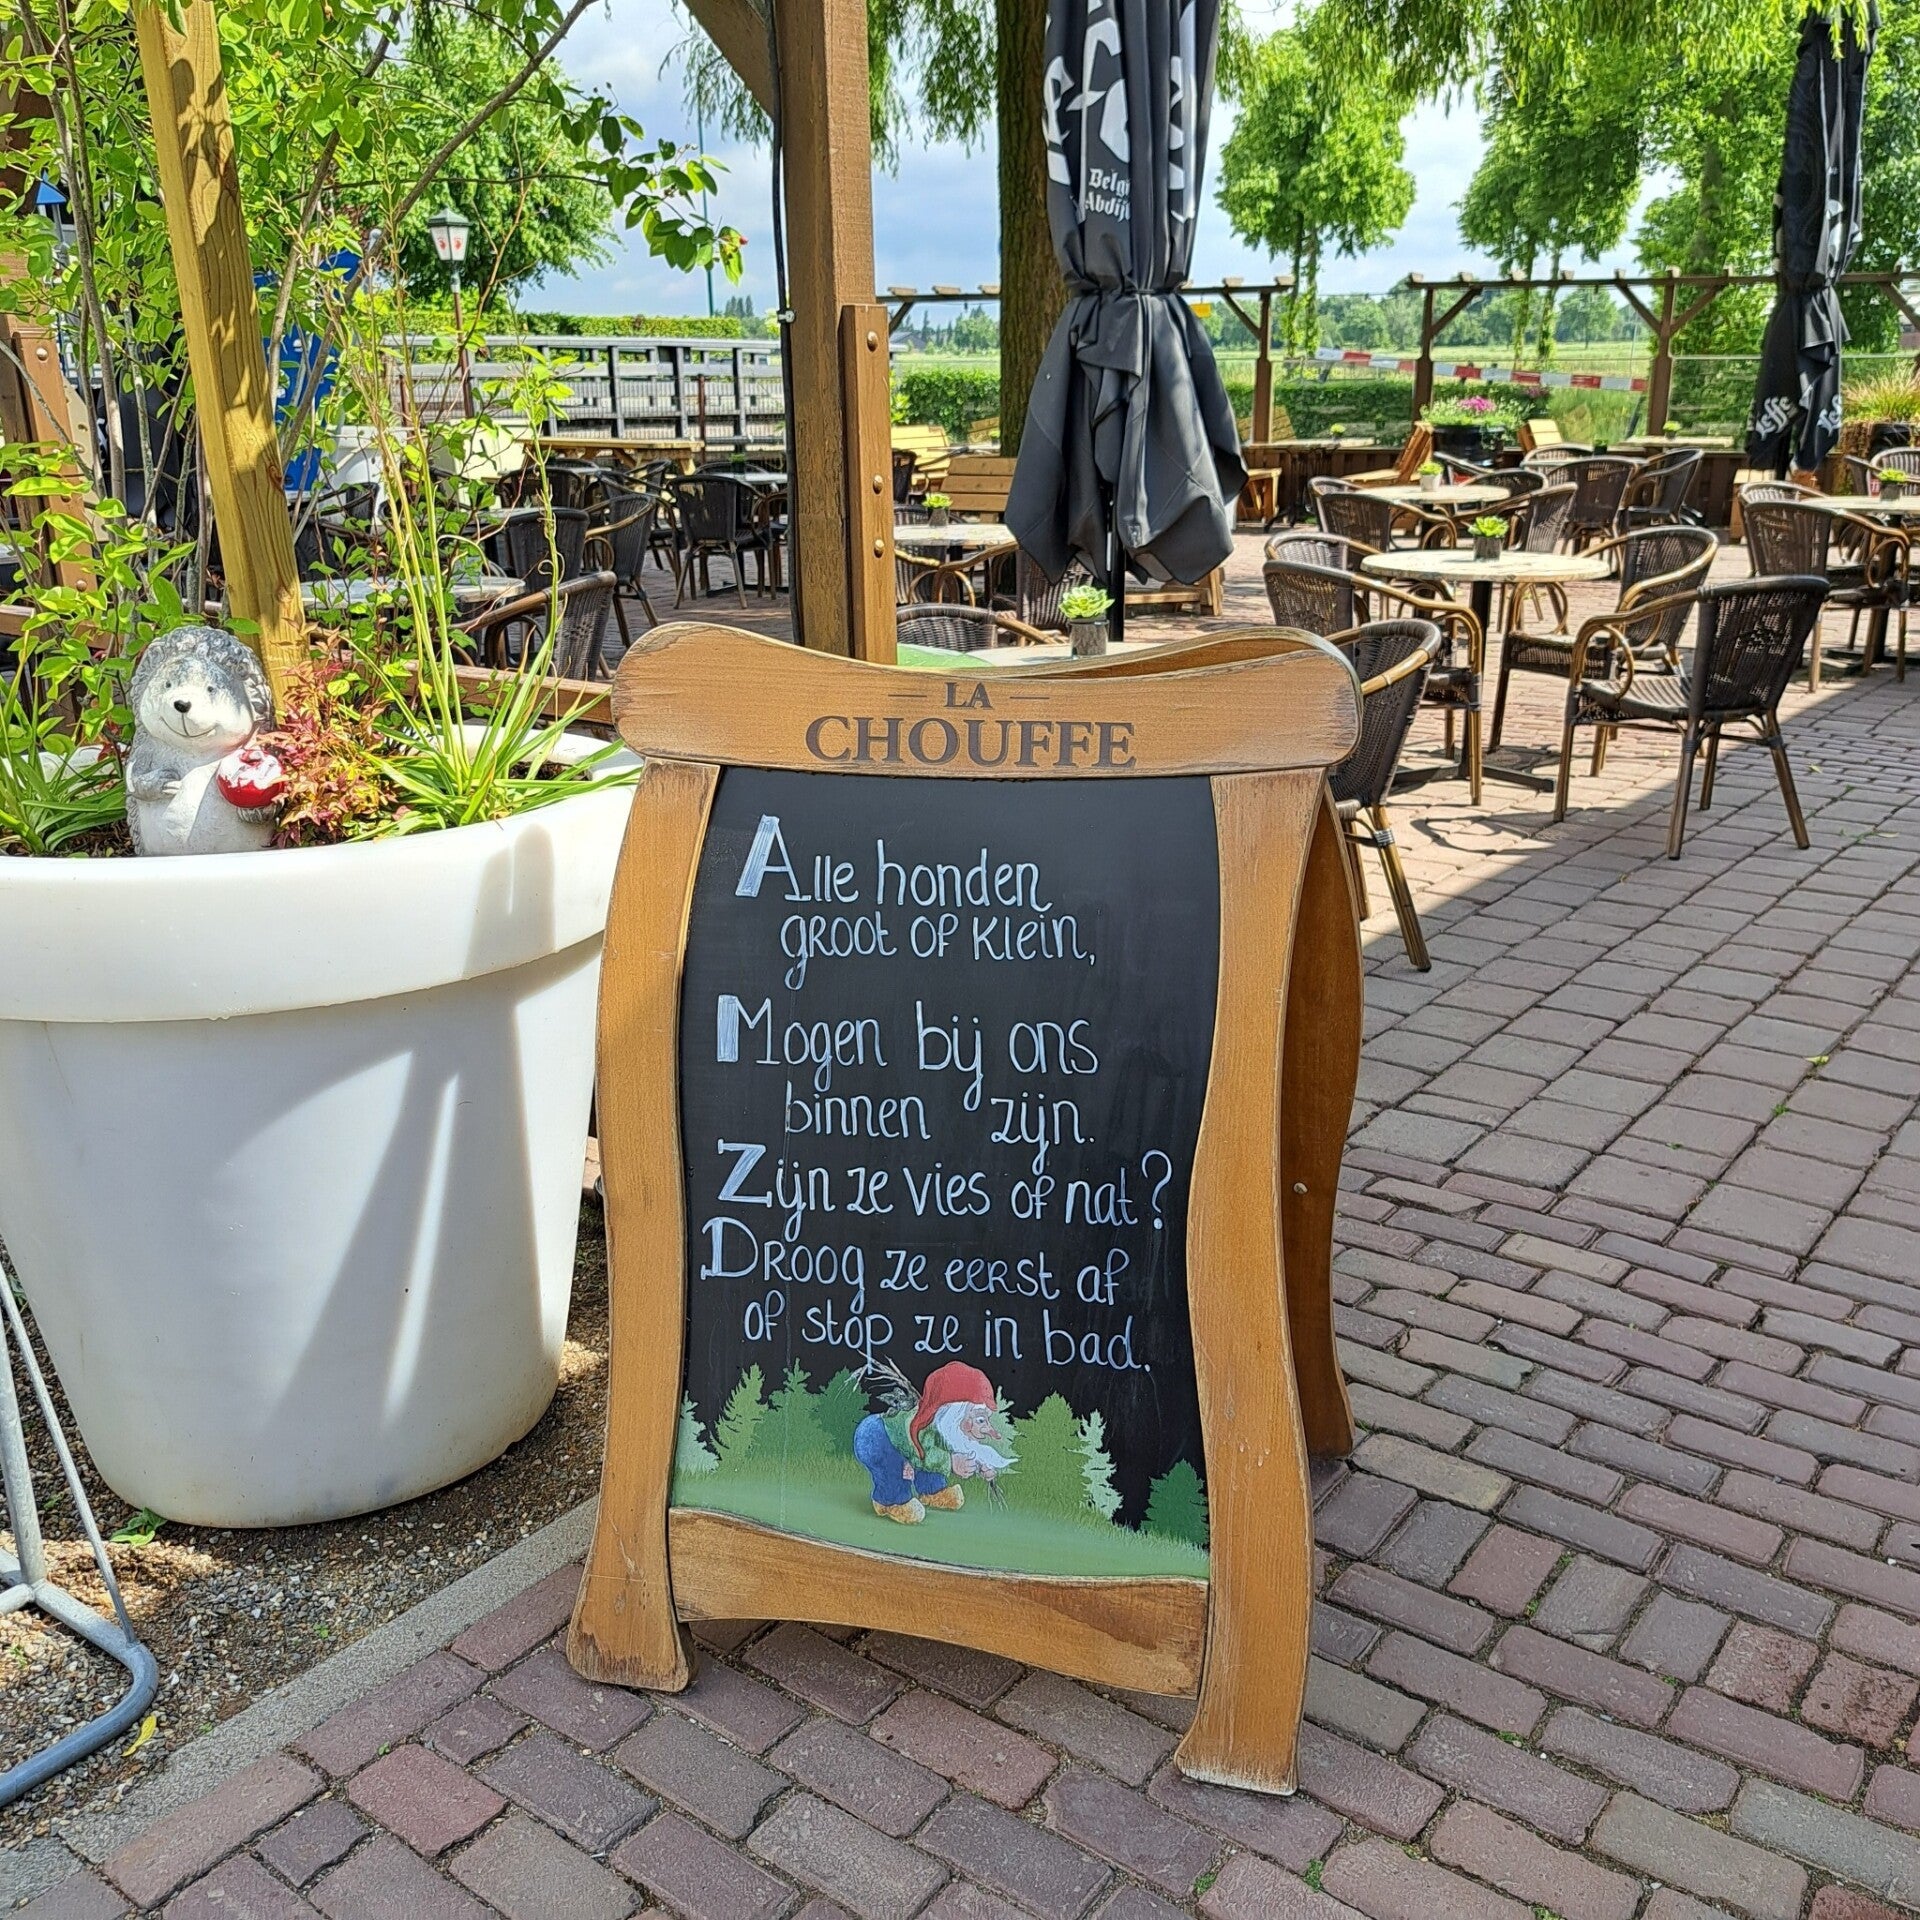 Belgi
Abdij
Leffe
— LA —
CHOUFFE
Alle honden
groot of klein,
Mogen bij ons
binnen zijn.
Zijn ze vies of nat?
Droog ze eerst af
of stop ze in bad.